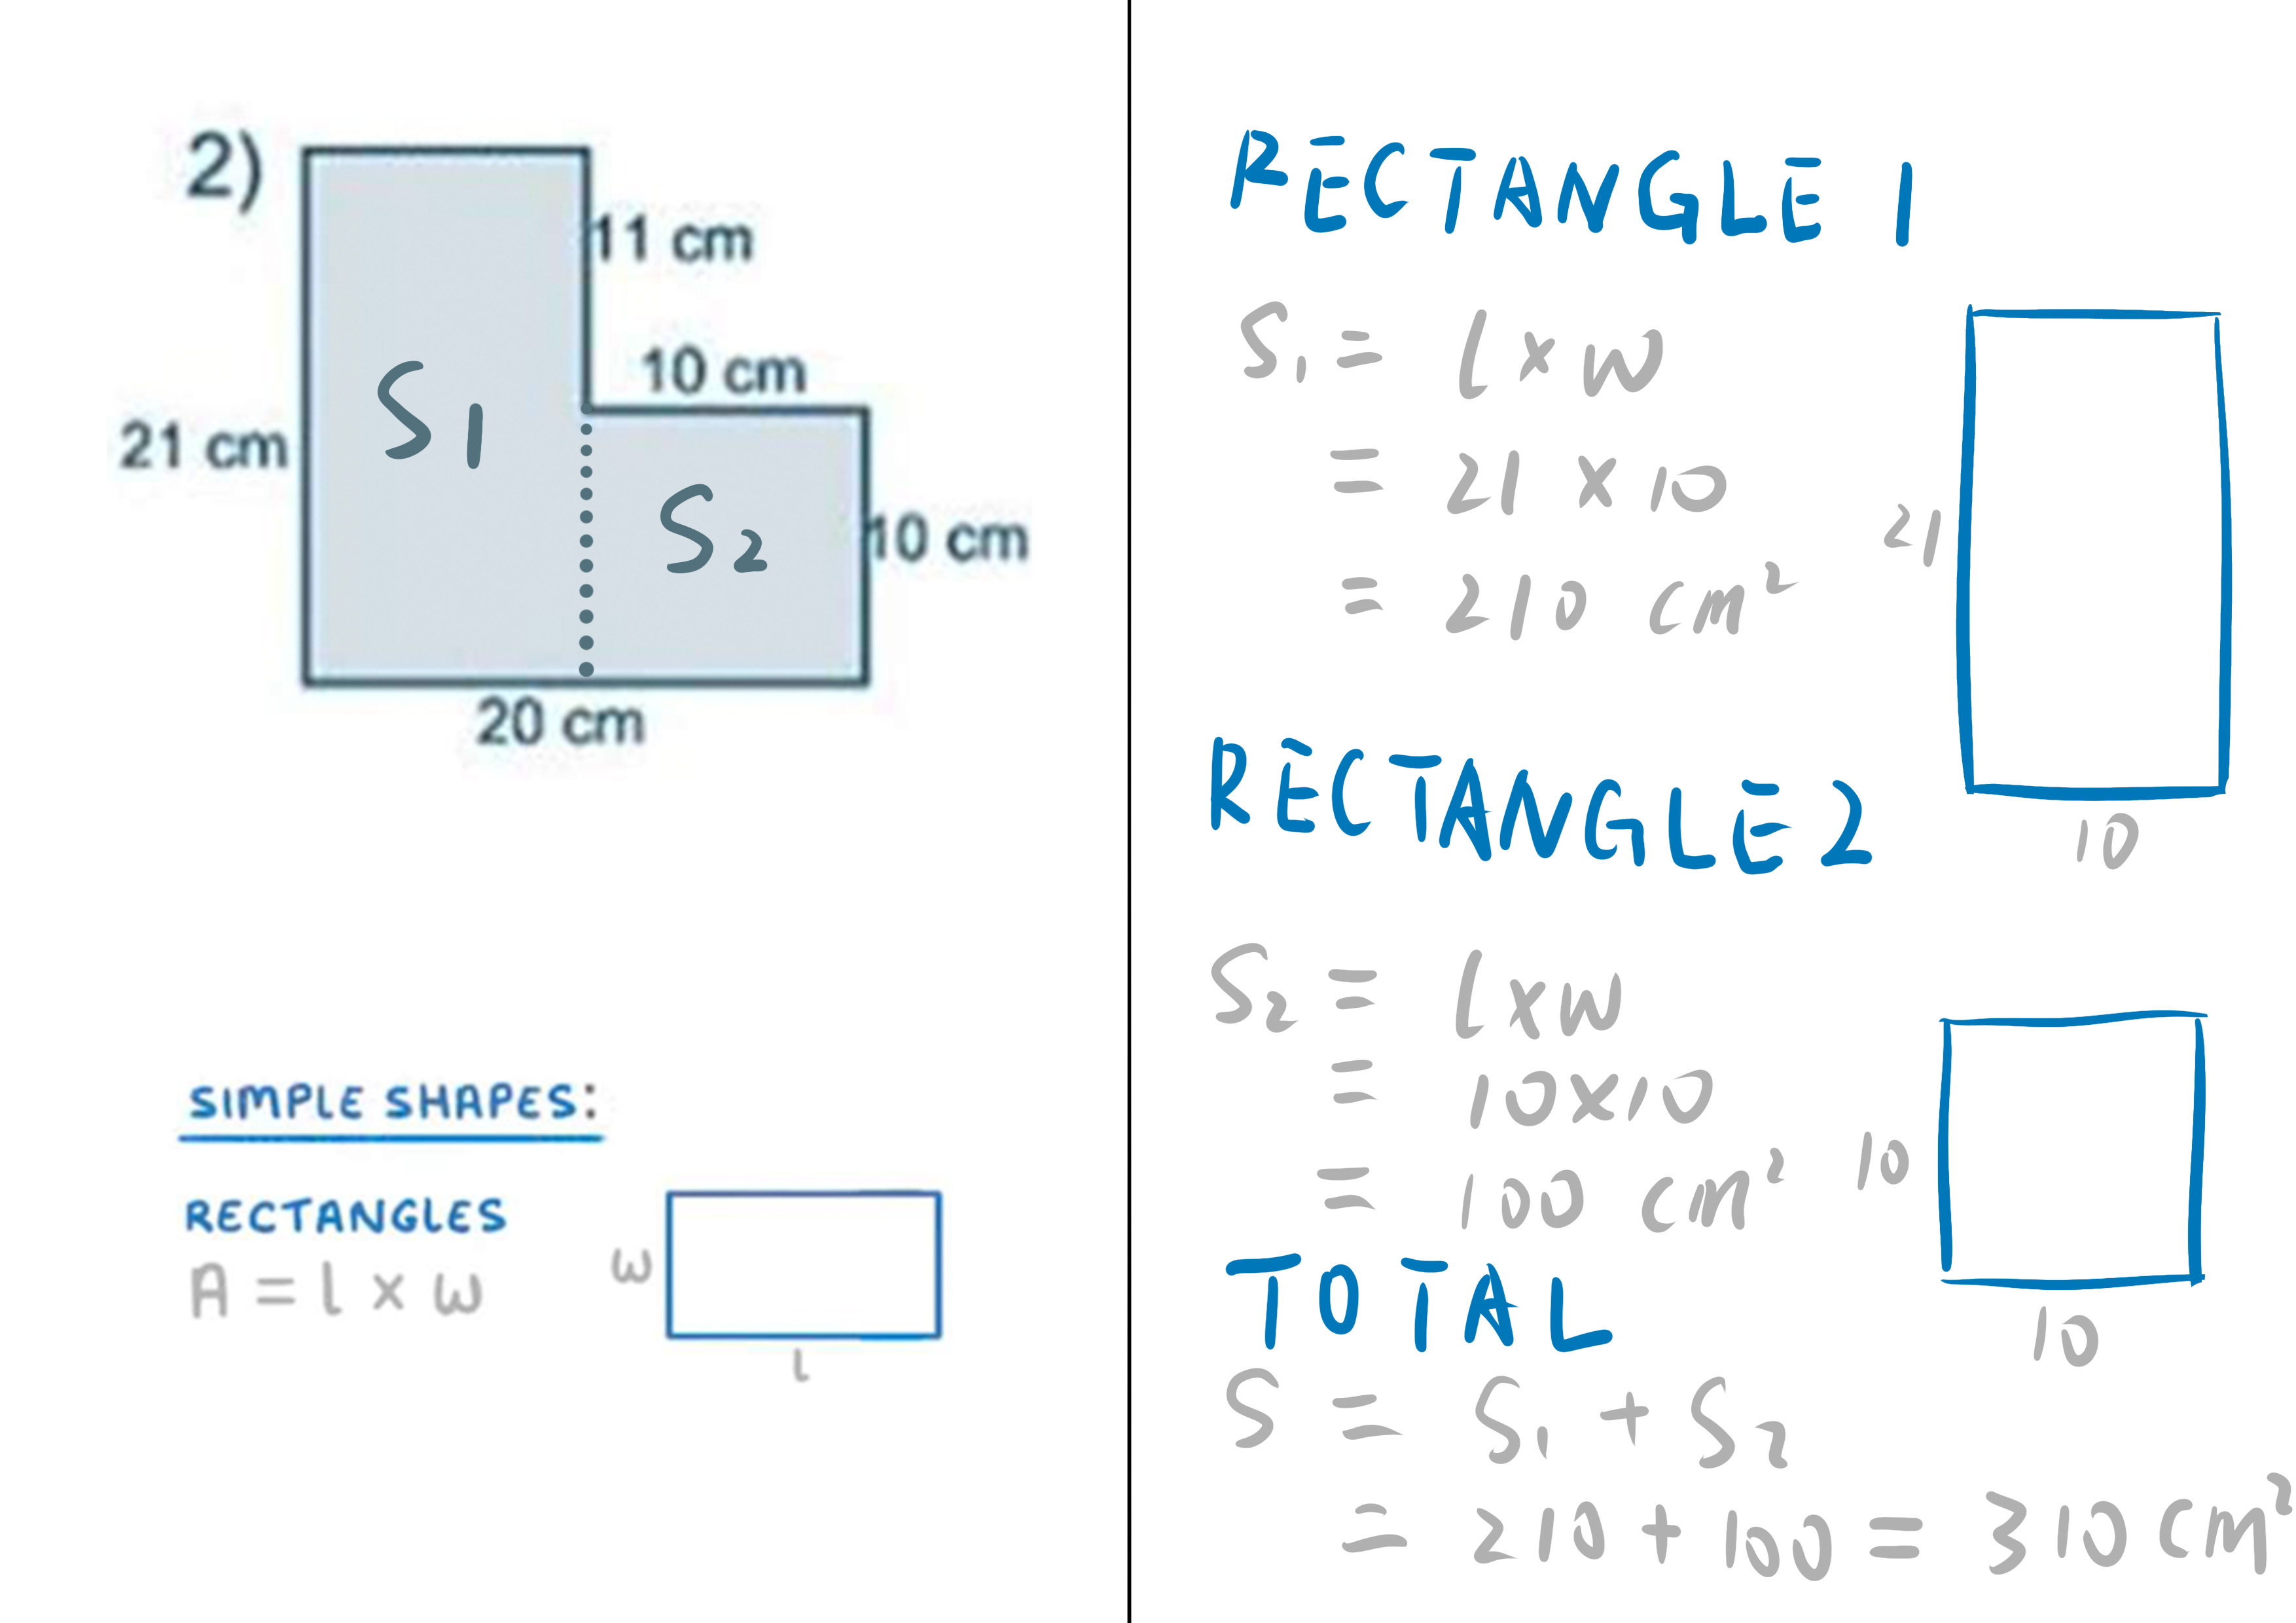 2)
11 cm
10 cm
21 cm
S1
S2
10 cm
20 cm
SIMPLE SHAPES:
RECTANGLES
A = l × w
w
l
RECTANGLE 1
S₁ = l × w
= 21 × 10
= 210 cm²
21
10
RECTANGLE 2
S₂ = l × w
= 10 × 10
= 100 cm²
10
10
TOTAL
S = S₁ + S₂
= 210 + 100 = 310 cm²